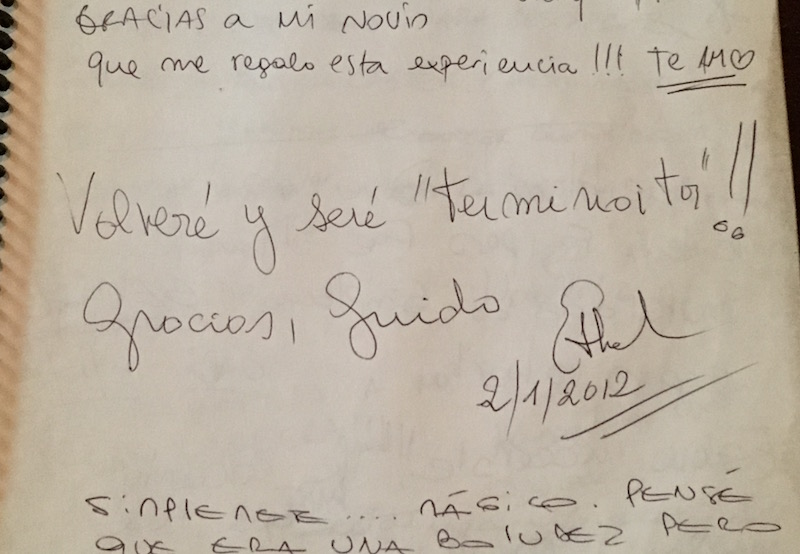 GRACIAS a mi NOVIO
que me regalo esta experiencia!!! Te AMO
Volveré y seré "terminoitor"!!
Gracias, Guido
Ethel
2/1/2012
SIMPLEMENTE .... MÁGICO. PENSÉ
QUE ERA UNA BOLUDEZ PERO